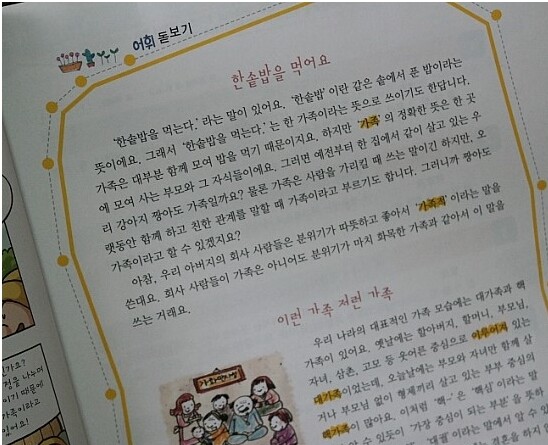 어휘 돋보기
한솥밥을 먹어요
'한솥밥을 먹는다.' 라는 말이 있어요. '한솥밥' 이란 같은 솥에서 푼 밥이라는
뜻이에요. 그래서 '한솥밥을 먹는다.' 는 한 가족이라는 뜻으로 쓰이기도 한답니다.
가족은 대부분 함께 모여 밥을 먹기 때문이지요. 하지만 '가족' 의 정확한 뜻은 한 곳
에 모여 사는 부모와 그 자식들이에요. 그러면 예전부터 한 집에서 같이 살고 있는 우
리 강아지 짱아도 가족일까요? 물론 가족은 사람을 가리킬 때 쓰는 말이긴 하지만, 오
랫동안 함께 하고 친한 관계를 말할 때 가족이라고 부르기도 합니다. 그러니까 짱아도
가족이라고 할 수 있겠지요?
아참, 우리 아버지의 회사 사람들은 분위기가 따뜻하고 좋아서 '가족적' 이라는 말을
쓴대요. 회사 사람들이 가족은 아니어도 분위기가 마치 화목한 가족과 같아서 이 말을
쓰는 거래요.
이런 가족 저런 가족
우리 나라의 대표적인 가족 모습에는 대가족과 핵
가족이 있어요. 옛날에는 할아버지, 할머니, 부모님,
자녀, 삼촌, 고모 등 웃어른 중심으로 이루어져 있는
대가족이었는데, 오늘날에는 부모와 자녀만 함께 살
거나 부모님 없이 형제끼리 살고 있는 부부 중심의
핵가족이 많아요. 이처럼 '핵-' 은 '핵심' 이라는 말
에서 알 수 있듯이 '가장 중심이 되는 부분' 을 뜻하